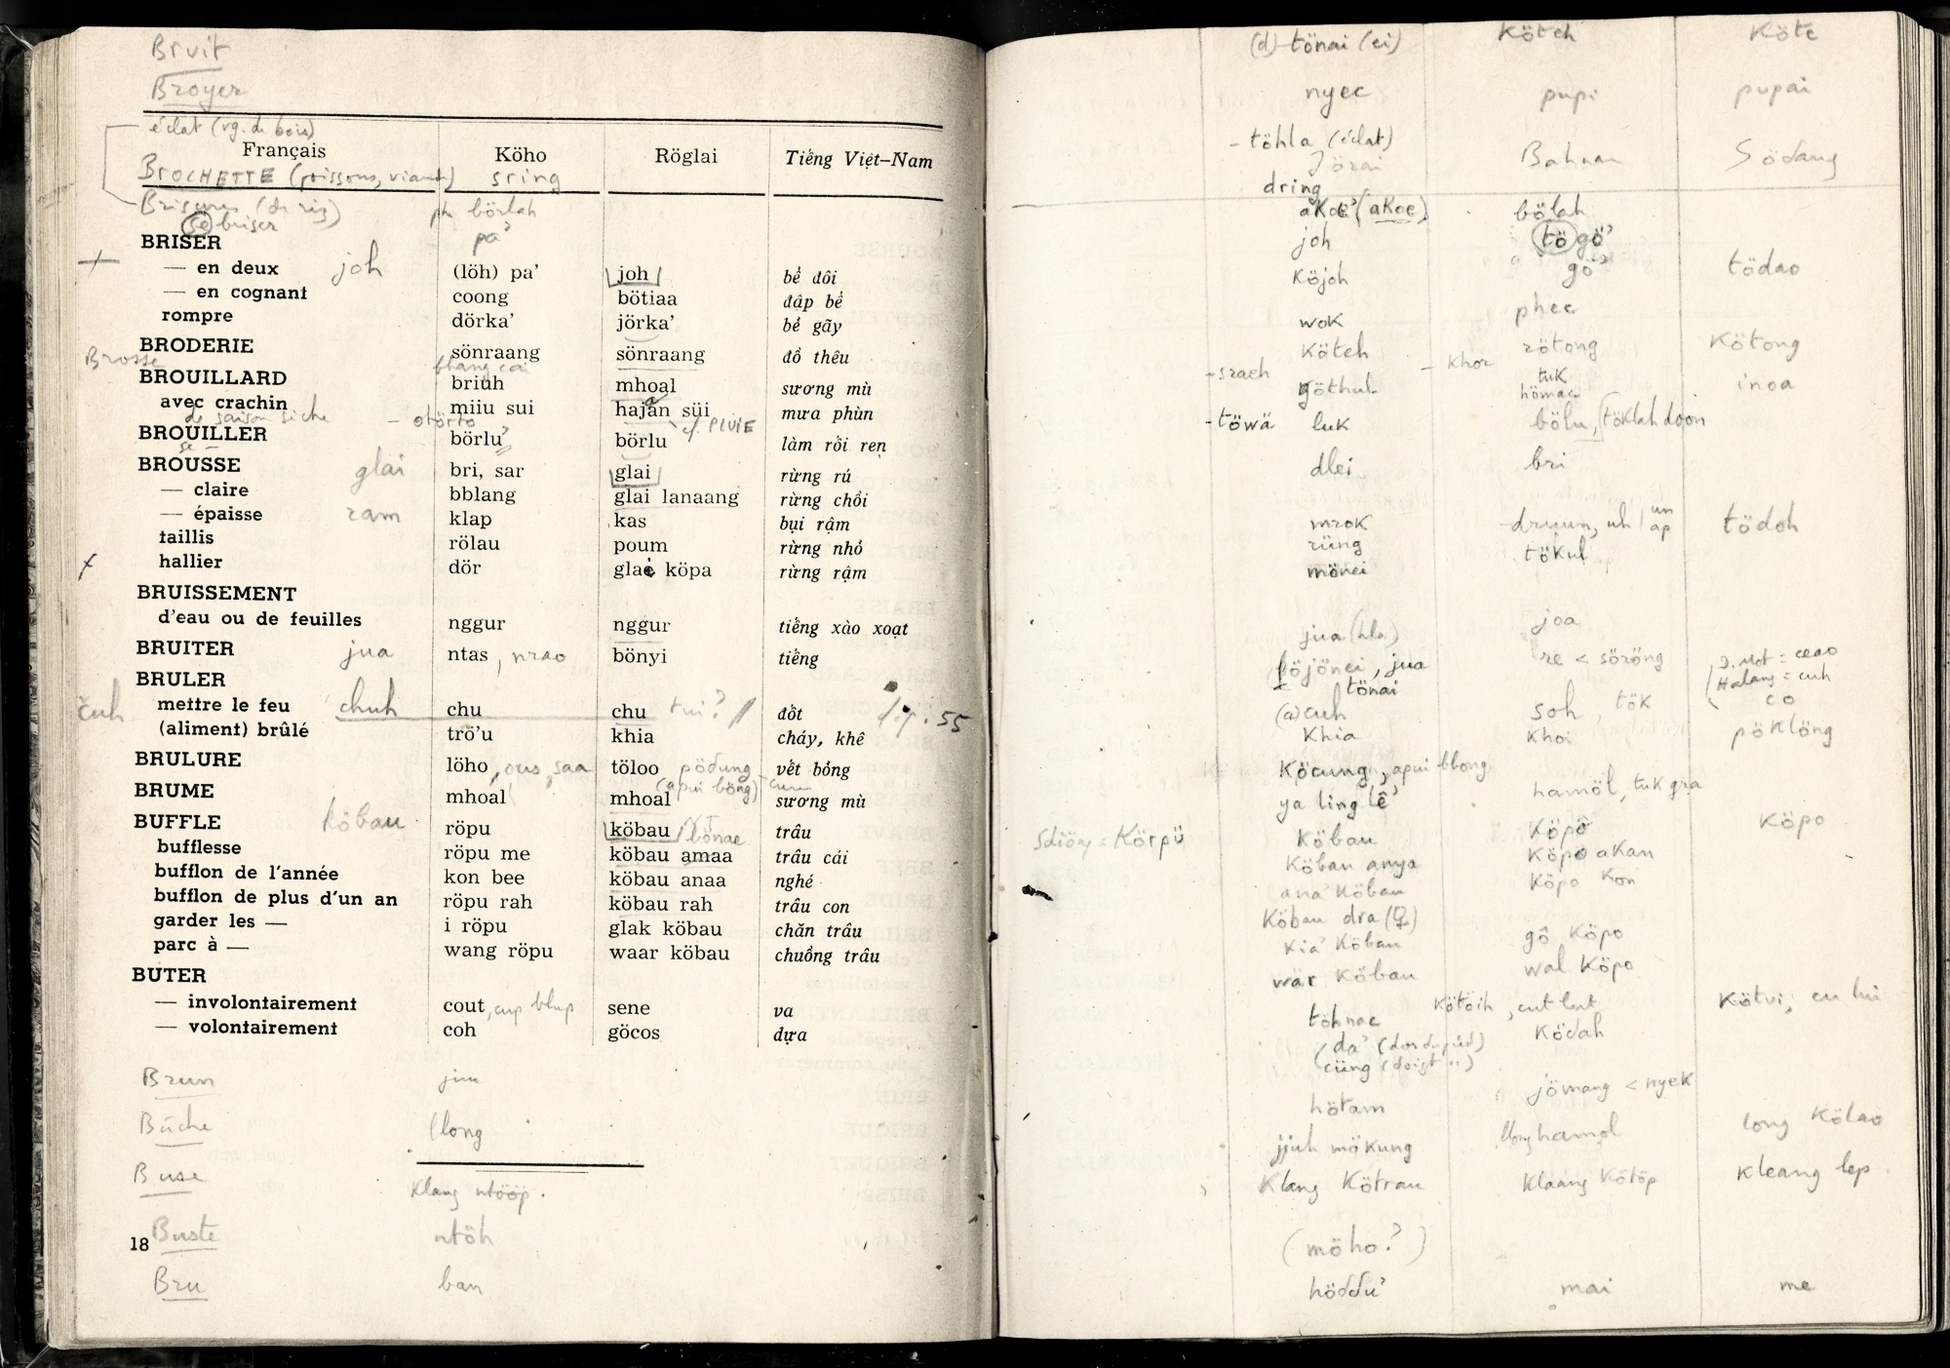 Bruit
Broyer
éclat (vg. de bois)
Français Köho Röglai Tiếng Việt–Nam
BROCHETTE (poissons, viande) sring
Brisures (de riz) börlah
(se) briser
BRISER pa'
— en deux joh (löh) pa' joh bể đôi
— en cognant coong bötiaa đập bể
rompre dörka' jörka' bể gãy
BRODERIE sönraang sönraang đồ thêu
Brosse
BROUILLARD briuh mhoal sương mù
avec crachin miiu sui hajan süi mưa phùn
de saison sèche – otörto cf. PLUIE
BROUILLER börlu' börlu làm rối ren
se –
BROUSSE glai bri, sar glai rừng rú
— claire bblang glai lanaang rừng chồi
— épaisse ram klap kas bụi rậm
taillis rölau poum rừng nhỏ
hallier dör glai köpa rừng rậm
BRUISSEMENT
d'eau ou de feuilles nggur nggur tiếng xào xoạt
BRUITER jua ntas, nrao bönyi tiếng
BRULER
mettre le feu cuh chuh chu chu tui? đốt 55
(aliment) brûlé trö'u khia cháy, khê
BRULURE löho, ous, saa töloo pödung vết bỏng
(apui bông)
BRUME mhoal mhoal sương mù
BUFFLE köbau röpu köbau trâu
bufflesse röpu me köbau amaa trâu cái
bufflon de l'année kon bee köbau anaa nghé
bufflon de plus d'un an röpu rah köbau rah trâu con
garder les — i röpu glak köbau chăn trâu
parc à — wang röpu waar köbau chuồng trâu
BUTER
— involontairement cout, cup blup sene va
— volontairement coh göcos dựa
Brun
Bûche llong
Buse klang ntööp.
18 Buste ntöh
Bru ban
(d) tönai (ei) köteh köte
nyec pupi pupai
– töhla (éclat)
Jörai Bahnan Södang
dring
akoe' (akoe) bölah
joh tögö'
köjoh gö' tödao
wok phec
köteh rötong kötong
– sraeh göthul – khor tuk inoa
hömac
– töwä luk bölu, töklah doon
dlei bri
mrok druun, uh un ap tödoh
rüng tökul
mönei
jua (hla) joa
böjönei, jua re < söröng D. Mot = ceao
tönai Halang = cuh
(a)cuh soh, tök co
khia khoi pöklöng
köcung, apui bbong
ya ling lê' hamöl, tuk gra
Sdiöng = Körpü köbau köpô köpo
köbau anya köpo akan
ana köbau köpo kon
köbau dra (♀)
kia' köbau gô köpo
wär köbau wal köpo
töhnac kötöih, cut lut kötvi, cu lui
da' (dos du pied) ködah
cüng (doigt ")
hötam jömang < nyek
jjuh mökung llong hamöl long kölao
klang kötrau klaang kötöp kleang lep
(möho?)
höddu' mai me